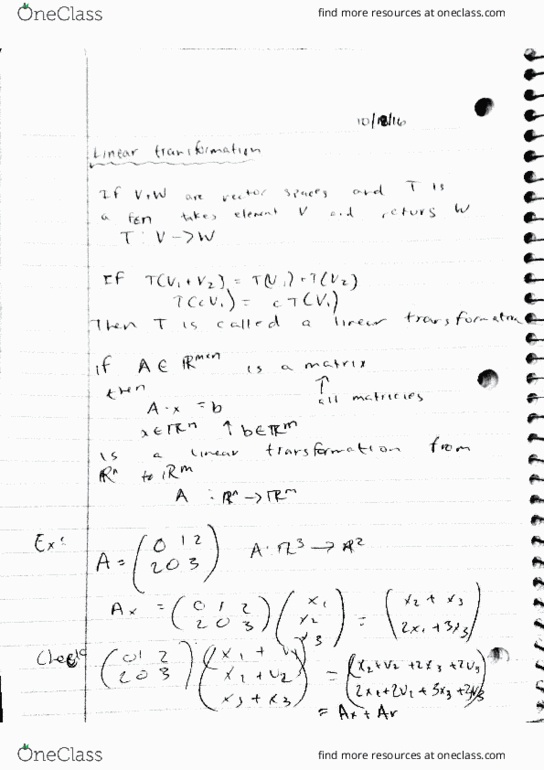 OneClass
find more resources at oneclass.com
10/18/16
Linear transformation
If V,W are vector spaces and T is
a fcn takes element V and returs W
T : V -> W
If T(V₁ + V₂) = T(V₁) + T(V₂)
T(cV₁) = cT(V₁)
Then T is called a linear transformatm
if A ∈ ℝᵐˣⁿ is a matrix
then ↑
all matricies
A · x = b
x ∈ ℝⁿ ↑ b ∈ ℝᵐ
is a linear transformation from
ℝⁿ to ℝᵐ
A : ℝⁿ → ℝᵐ
Ex: A = (0 1 2 / 2 0 3) A : ℝ³ → ℝ²
Ax = (0 1 2 / 2 0 3) (x₁ / x₂ / x₃) = (x₂ + x₃ / 2x₁ + 3x₃)
Check (0 1 2 / 2 0 3) (x₁ + V₁ / x₁ + V₂ / x₃ + x₃) = (x₂ + V₂ + 2x₃ + 2V₃ / 2x₁ + 2V₁ + 3x₃ + 3V₃)
= Ax + Av
OneClass
find more resources at oneclass.com